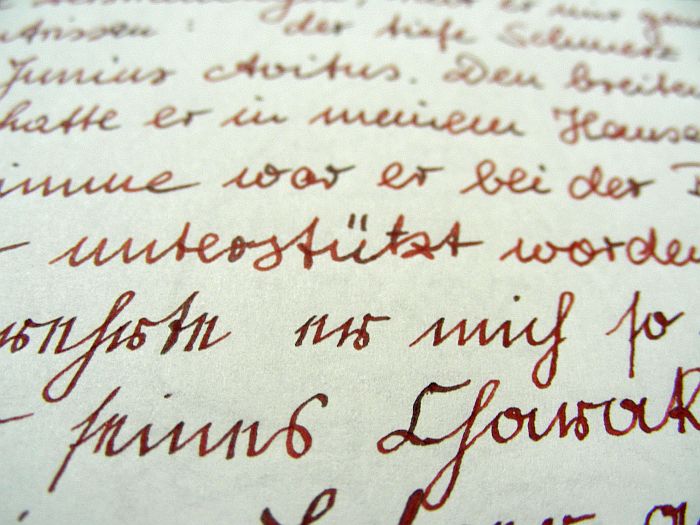 er mir
ntrissen : der tiefe Schmerz
Junius Avitus. Den breiten
hatte er in meinem Hause
imme war er bei der
unterstützt worden
erehrte er mich so
seines Charak